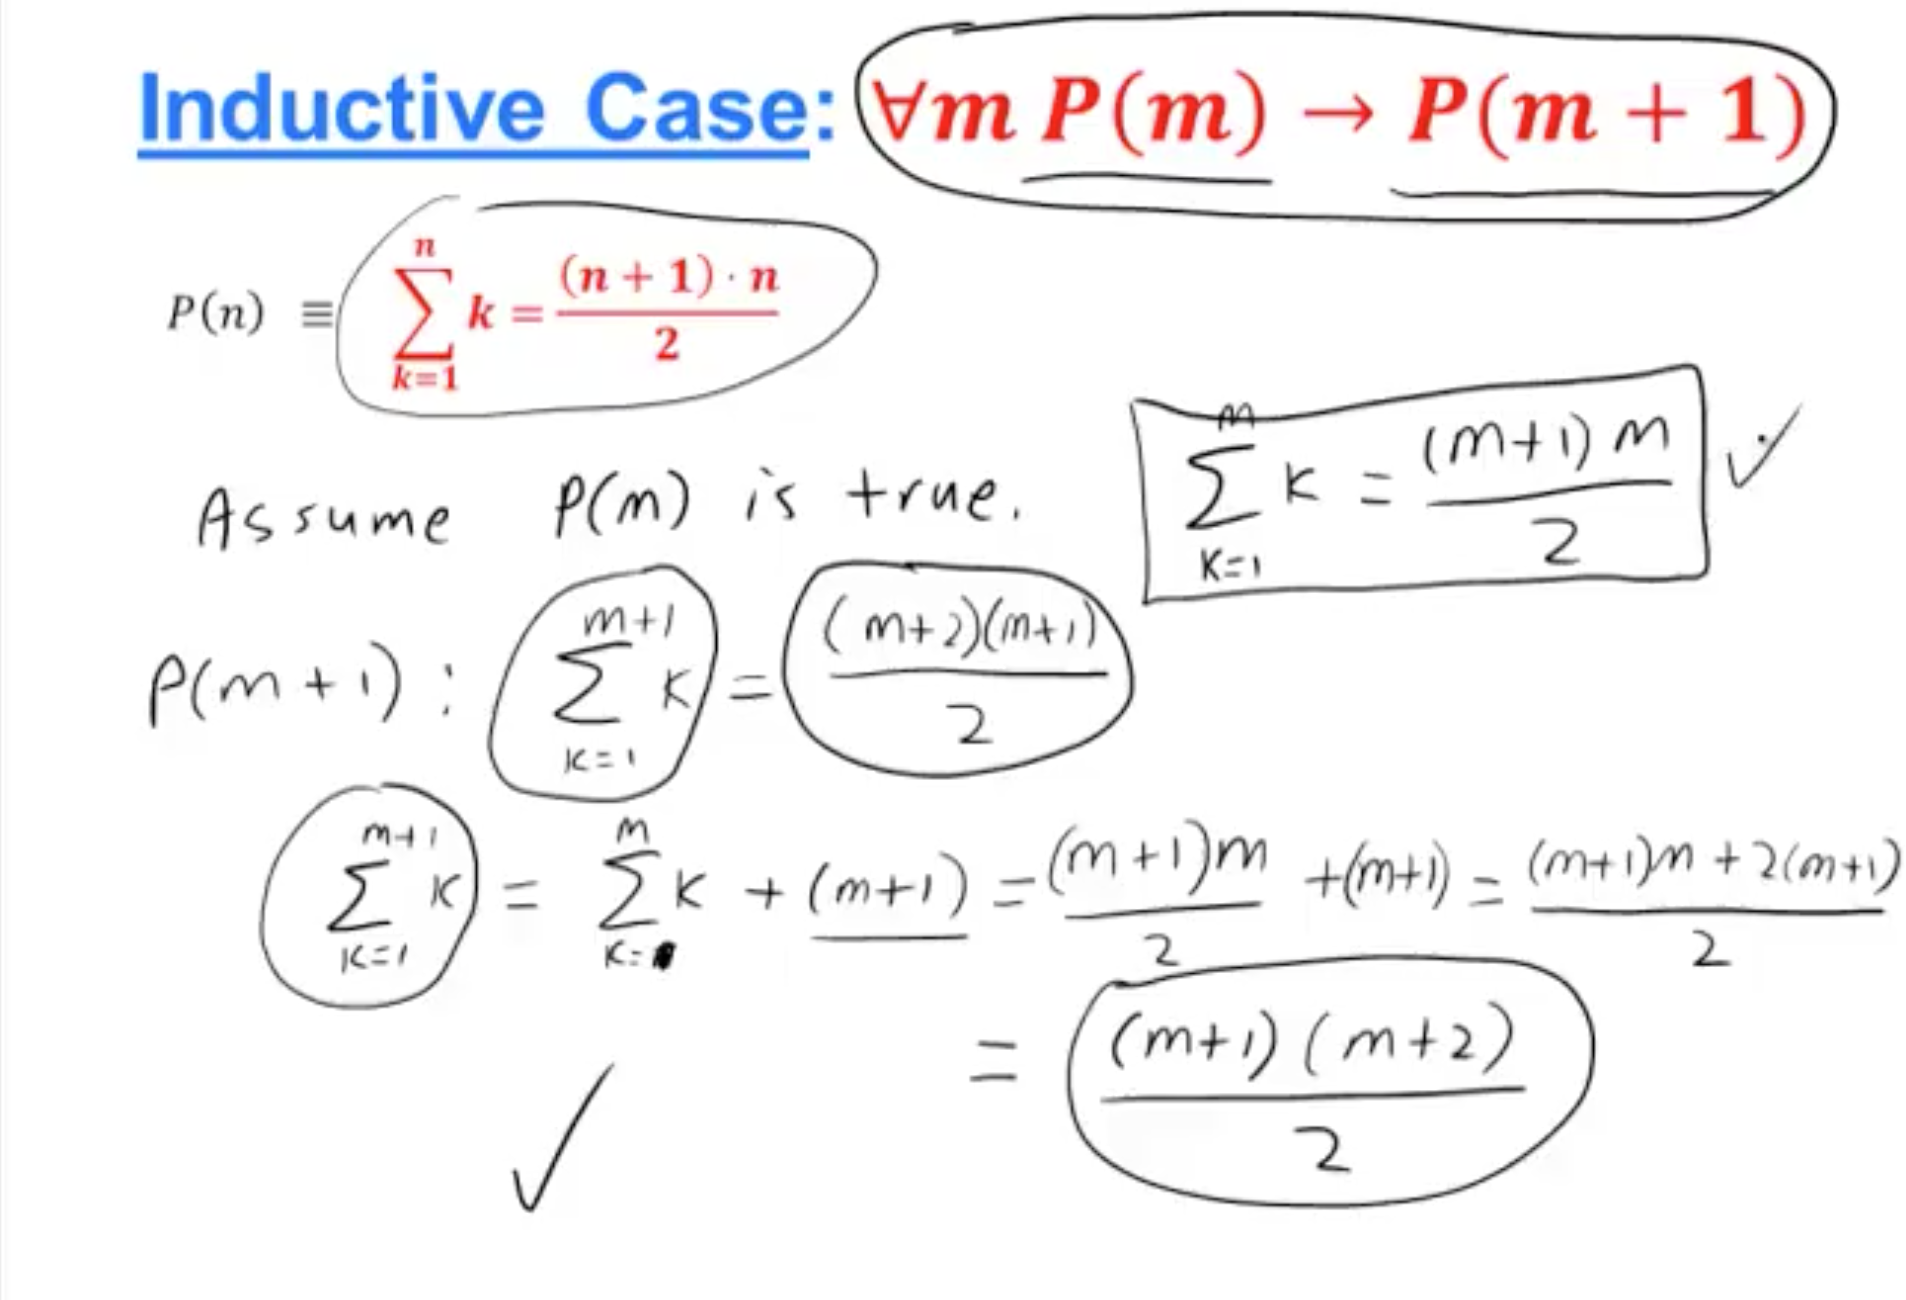 Inductive Case: ∀m P(m) → P(m + 1)
P(n) ≡ ∑_{k=1}^{n} k = (n + 1) · n / 2
∑_{K=1}^{m} K = (m+1) m / 2 ✓
Assume P(m) is true.
P(m+1) : ∑_{K=1}^{m+1} K = (m+2)(m+1) / 2
∑_{K=1}^{m+1} K = ∑_{K=}^{m} K + (m+1) = (m+1)m / 2 + (m+1) = (m+1)m + 2(m+1) / 2
= (m+1) (m+2) / 2
✓